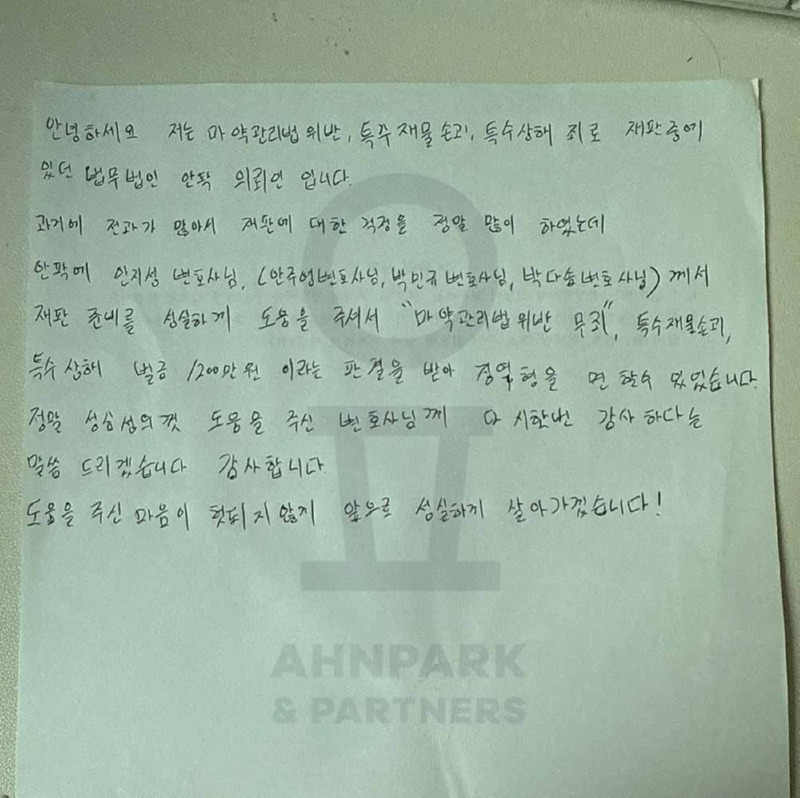 안녕하세요 저는 마약관리법위반, 특수재물손괴, 특수상해 죄로 재판중에
있던 법무법인 안팍 의뢰인 입니다.
과거에 전과가 많아서 재판에 대한 걱정을 정말 많이 하였는데
안팍에 안지성 변호사님, (안주영변호사님, 박민규변호사님, 박다솜변호사님) 께서
재판 준비를 성실하게 도움을 주셔서 "마약관리법위반 무죄", 특수재물손괴,
특수상해 벌금 1200만원 이라는 판결을 받아 징역형을 면 할수 있었습니다.
정말 성심성의껏 도움을 주신 변호사님께 다시한번 감사하다는
말씀 드리겠습니다 감사합니다.
도움을 주신 마음이 헛되지않게 앞으로 성실하게 살아가겠습니다!
AHNPARK
& PARTNERS